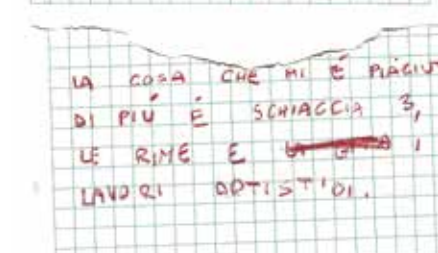 LA COSA CHE MI È PIACIUT
DI PIÚ É SCHIACCIA 3,
LE RIME E I
LAVORI ARTISTICI.